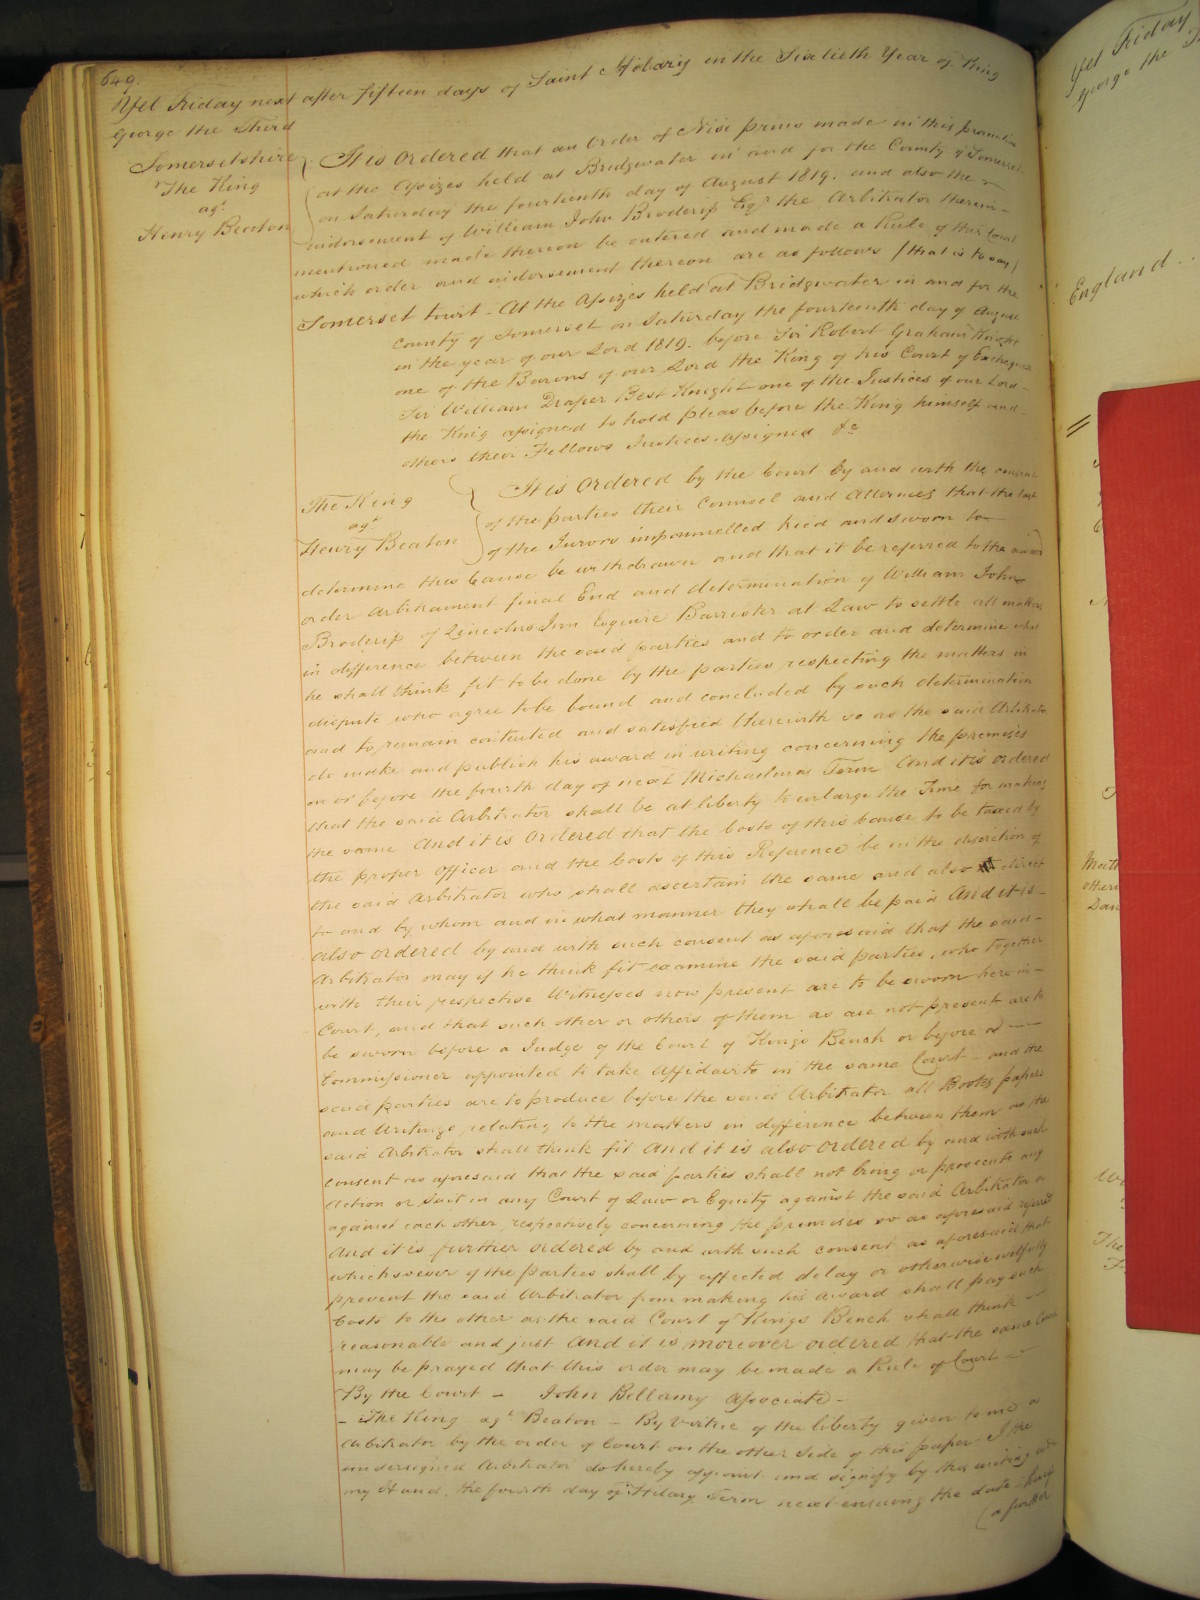 649.
Yet Friday next after fifteen days of Saint Hilary in the Sixtieth Year of King
George the Third
Somersetshire
The King
agt
Henry Beaton
It is Ordered that an Order of Nisi prius made in this prosecution
at the Assizes held at Bridgwater in and for the County of Somerset
on Saturday the fourteenth day of August 1819. and also the
indorsement of William John Broderip Esqr. the Arbitrator therein
mentioned made thereon be entered and made a Rule of this Court
which order and indorsement thereon are as follows (that is to say)
Somerset towit - At the Assizes held at Bridgwater in and for the
County of Somerset on Saturday the fourteenth day of August
in the year of our Lord 1819. before Sir Robert Graham Knight
one of the Barons of our Lord the King of his Court of Exchequer
Sir William Draper Best Knight one of the Justices of our Lord
the King assigned to hold pleas before the King himself and
others their Fellows Justices assigned &c
The King
agt
Henry Beaton
It is Ordered by the Court by and with the consent
of the parties their Counsel and Attornies that the last
of the Jurors impannelled tried and sworn to
determine this Cause be withdrawn and that it be referred to the award
order Arbitrament final End and determination of William John
Broderip of Lincolns Inn Esquire Barrister at Law to settle all matters
in difference between the said parties and to order and determine what
he shall think fit to be done by the parties respecting the matters in
dispute who agree to be bound and concluded by such determination
and to remain contented and satisfied therewith so as the said Arbitrator
do make and publish his award in writing concerning the premises
on or before the fourth day of next Michaelmas Term And it is ordered
that the said Arbitrator shall be at liberty to enlarge the Time for making
the same And it is Ordered that the Costs of this Cause to be taxed by
the proper Officer and the Costs of this Reference be in the discretion of
the said Arbitrator who shall ascertain the same and also direct
to and by whom and in what manner they shall be paid And it is
also ordered by and with such consent as aforesaid that the said
Arbitrator may if he think fit examine the said parties, who together
with their respective Witnesses now present are to be sworn here in
Court, and that such other or others of them as are not present are to
be sworn before a Judge of the Court of Kings Bench or before a
Commissioner appointed to take Affidavits in the same Court - and the
said parties are to produce before the said Arbitrator all Books papers
and Writings relating to the matters in difference between them as the
said Arbitrator shall think fit And it is also ordered by and with such
consent as aforesaid that the said parties shall not bring or prosecute any
Action or Suit in any Court of Law or Equity against the said Arbitrator or
against each other, respectively concerning the premises so as aforesaid referred
And it is further ordered by and with such consent as aforesaid that
whichsoever of the parties shall by affected delay or otherwise wilfully
prevent the said Arbitrator from making his award shall pay such
Costs to the other as the said Court of Kings Bench shall think
reasonable and just And it is moreover ordered that the same Court
may be prayed that this order may be made a Rule of Court
By the Court - John Bellamy Associate -
- The King agt Beaton - By Virtue of the liberty given to me as
Arbitrator by the order of Court on the other side of this paper I the
undersigned Arbitrator do hereby appoint and signify by this writing under
my Hand, the fourth day of Hilary Term next ensuing the date hereof
(a further
Yet Friday
George the
England